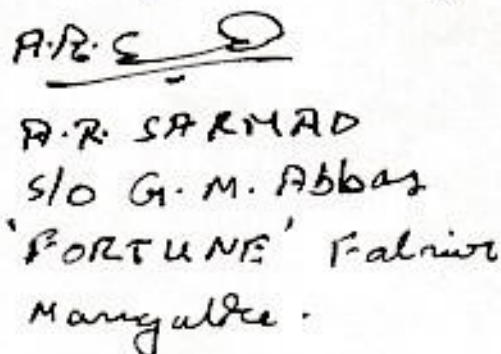 A.R.S
A.R. SARMAD
S/O G.M. Abbas
'FORTUNE' Falnir
Mangalore.